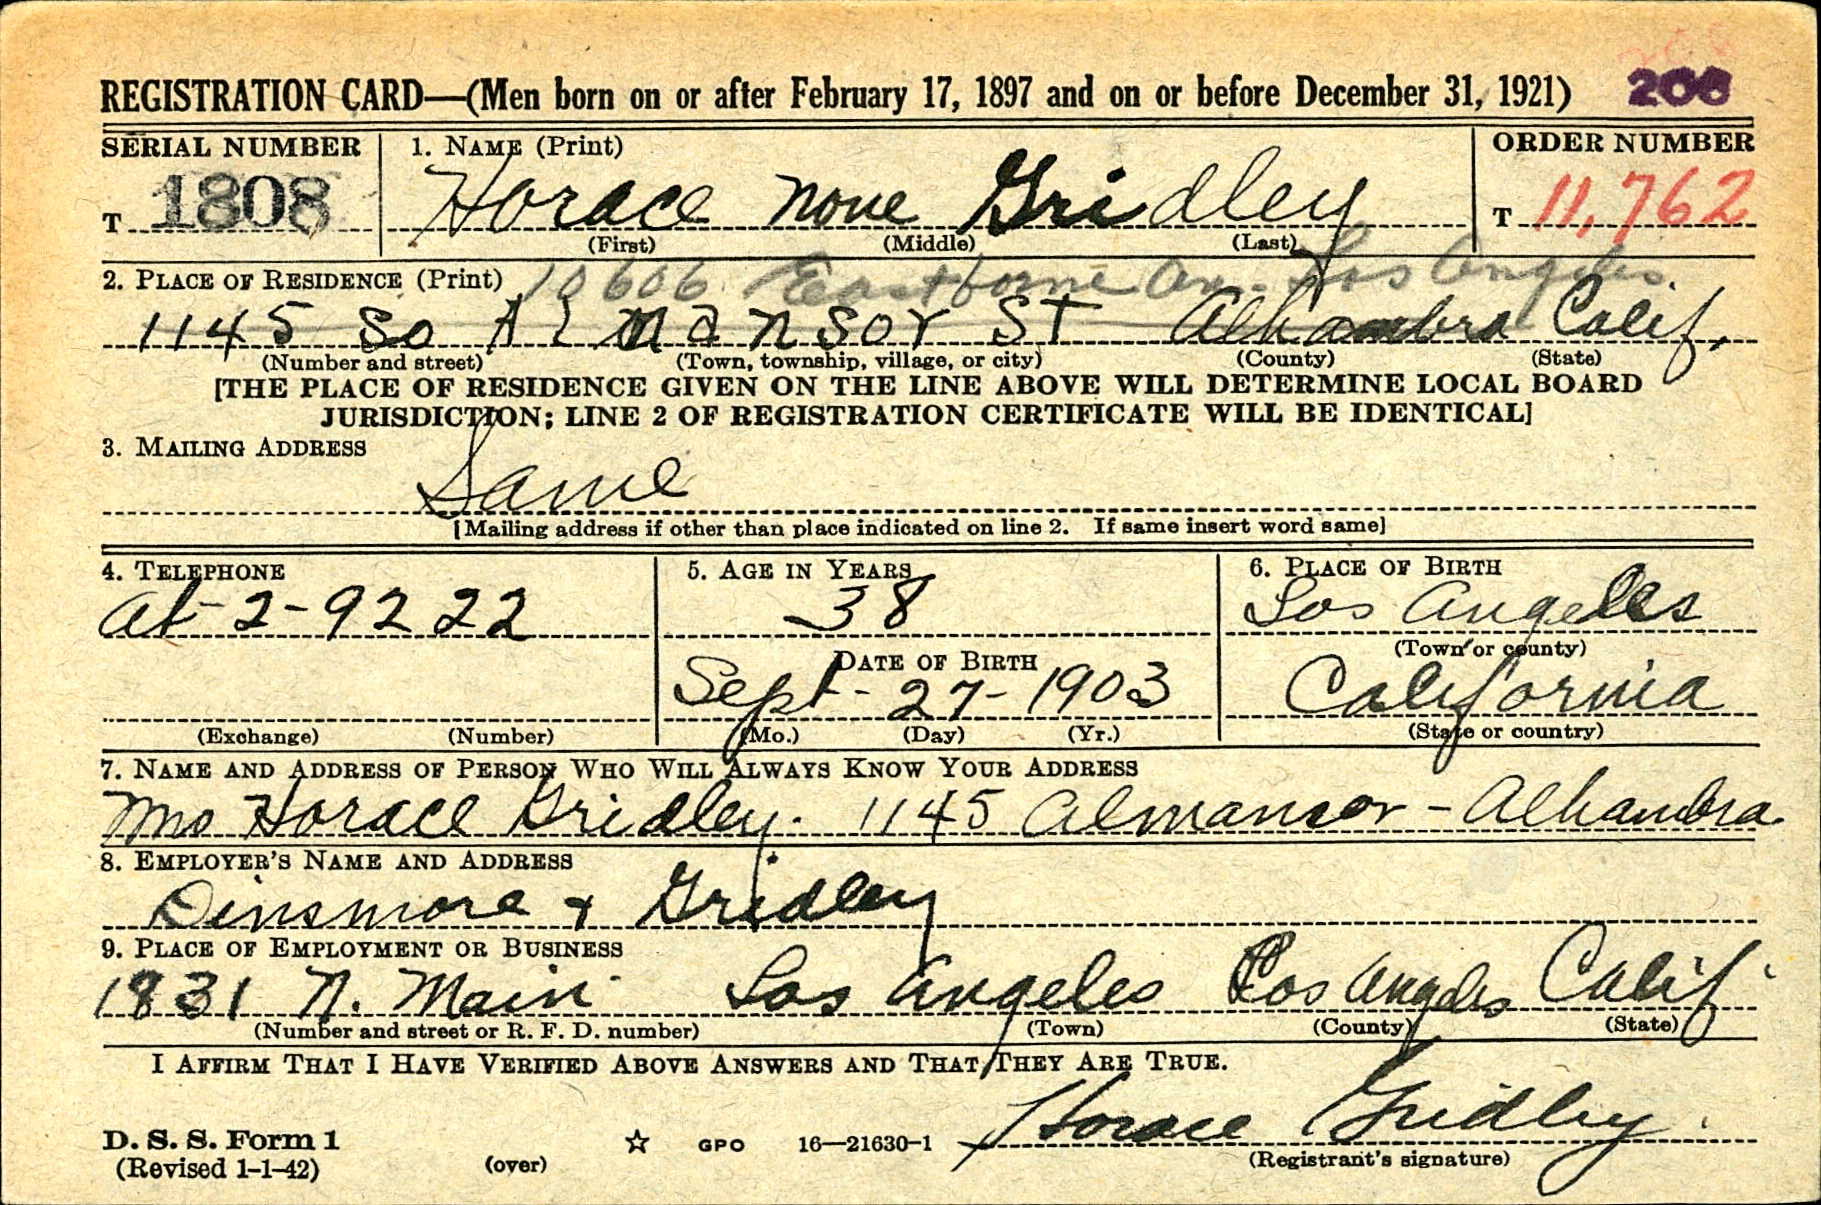 REGISTRATION CARD—(Men born on or after February 17, 1897 and on or before December 31, 1921) 206
SERIAL NUMBER 1. NAME (Print) ORDER NUMBER
T 1808 Horace None Gridley T 11,762
(First) (Middle) (Last)
2. PLACE OF RESIDENCE (Print) 10606 Eastborne Av. Los Angeles
1145 So Almansor ST Alhambra Calif.
(Number and street) (Town, township, village, or city) (County) (State)
[THE PLACE OF RESIDENCE GIVEN ON THE LINE ABOVE WILL DETERMINE LOCAL BOARD
JURISDICTION; LINE 2 OF REGISTRATION CERTIFICATE WILL BE IDENTICAL]
3. MAILING ADDRESS
Same
[Mailing address if other than place indicated on line 2. If same insert word same]
4. TELEPHONE 5. AGE IN YEARS 6. PLACE OF BIRTH
At-2-9222 38 Los Angeles
DATE OF BIRTH (Town or county)
Sept-27-1903 California
(Exchange) (Number) (Mo.) (Day) (Yr.) (State or country)
7. NAME AND ADDRESS OF PERSON WHO WILL ALWAYS KNOW YOUR ADDRESS
Mrs Horace Gridley. 1145 Almansor - Alhambra
8. EMPLOYER'S NAME AND ADDRESS
Dinsmore + Gridley
9. PLACE OF EMPLOYMENT OR BUSINESS
1831 N. Main Los Angeles Los Angeles Calif
(Number and street or R. F. D. number) (Town) (County) (State)
I AFFIRM THAT I HAVE VERIFIED ABOVE ANSWERS AND THAT THEY ARE TRUE.
Horace Gridley
D. S. S. Form 1 ☆ GPO 16—21630-1
(Revised 1-1-42) (over) (Registrant's signature)